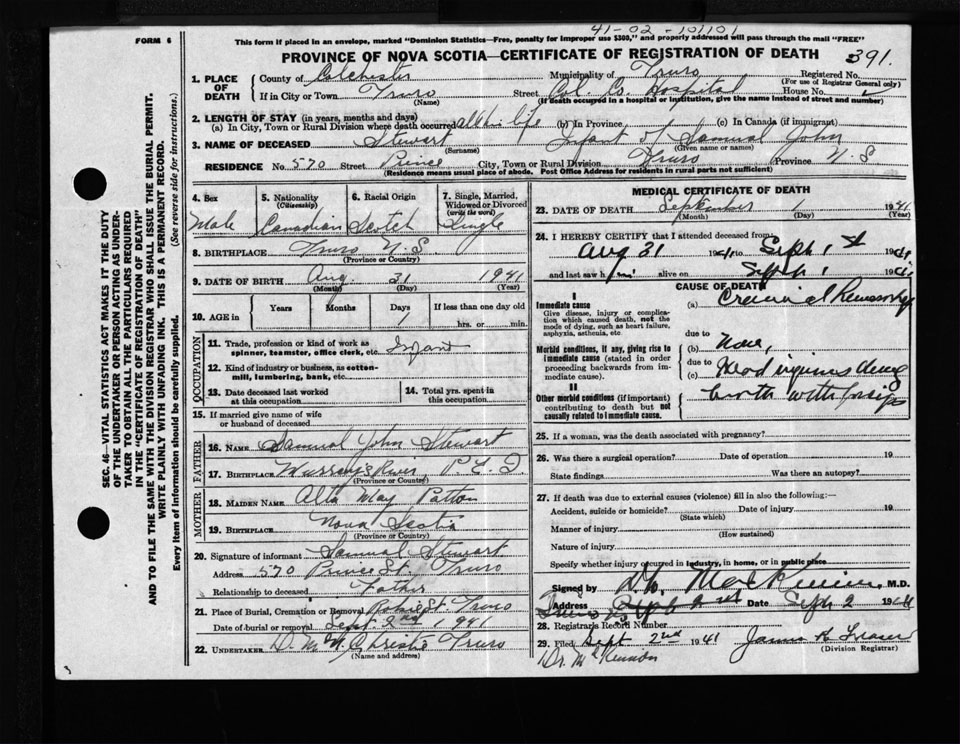 41-02-10110
FORM 6
This form if placed in an envelope, marked "Dominion Statistics—Free, penalty for improper use $300," and properly addressed will pass through the mail "FREE"
PROVINCE OF NOVA SCOTIA—CERTIFICATE OF REGISTRATION OF DEATH 391.
1. PLACE OF DEATH County of Colchester Municipality of Truro Registered No.
(For use of Registrar General only)
If in City or Town Truro Street Col. Co. Hospital House No.
(Name) (If death occurred in a hospital or institution, give the name instead of street and number)
2. LENGTH OF STAY (in years, months and days)
(a) In City, Town or Rural Division where death occurred all his life (b) In Province (c) In Canada (if immigrant)
3. NAME OF DECEASED Stewart Infant of Samual John
(Surname) (Given name or names)
RESIDENCE No. 570 Street Prince City, Town or Rural Division Truro Province N.S
(Residence means usual place of abode. Post Office Address for residents in rural parts not sufficient)
4. Sex 5. Nationality (Citizenship) 6. Racial Origin 7. Single, Married, Widowed or Divorced (write the word)
Male Canadian Scotch Single
8. BIRTHPLACE Truro N.S
(Province or Country)
9. DATE OF BIRTH Aug. 31 1941
(Month) (Day) (Year)
10. AGE in Years Months Days If less than one day old
1 hrs. or min.
OCCUPATION
11. Trade, profession or kind of work as spinner, teamster, office clerk, etc. Infant
12. Kind of industry or business, as cotton-mill, lumbering, bank, etc.
13. Date deceased last worked at this occupation 14. Total yrs. spent in this occupation
15. If married give name of wife or husband of deceased
FATHER
16. NAME Samual John Stewart
17. BIRTHPLACE Murray's River, P.E.I.
(Province or Country)
MOTHER
18. MAIDEN NAME Alta May Patton
19. BIRTHPLACE Nova Scotia
(Province or Country)
20. Signature of informant Samual Stewart
Address 570 Prince St. Truro
Relationship to deceased Father
21. Place of Burial, Cremation or Removal Robie St. Truro
Date of burial or removal Sept. 2nd 1941
22. UNDERTAKER Truro
(Name and address)
MEDICAL CERTIFICATE OF DEATH
23. DATE OF DEATH September 1 1941
(Month) (Day) (Year)
24. I HEREBY CERTIFY that I attended deceased from
Aug 31 1941 to Sept 1st 1941
and last saw him alive on Sept 1 1941
CAUSE OF DEATH
I
Immediate cause (a)
Give disease, injury or complication which caused death, not the mode of dying, such as heart failure, asphyxia, asthenia, etc.
due to
Morbid conditions, if any, giving rise to immediate cause (stated in order proceeding backwards from immediate cause). (b)
due to
(c) Head injuries during
II
Other morbid conditions (if important) contributing to death but not causally related to immediate cause. birth with forceps
25. If a woman, was the death associated with pregnancy?
26. Was there a surgical operation? Date of operation 19
State findings Was there an autopsy?
27. If death was due to external causes (violence) fill in also the following:—
Accident, suicide or homicide? Date of injury 19
(State which)
Manner of injury
(How sustained)
Nature of injury
Specify whether injury occurred in industry, in home, or in public place
Signed by MacKinnon M.D.
Address Date Sept 2 1941
28. Registrar's Record Number
29. Filed Sept 2nd 1941 James K Fraser
(Division Registrar)
Dr. McKinnon
SEC. 46—VITAL STATISTICS ACT MAKES IT THE DUTY
OF THE UNDERTAKER OR PERSON ACTING AS UNDER-
TAKER TO OBTAIN ALL THE PARTICULARS REQUIRED
IN THE "CERTIFICATE OF REGISTRATION OF DEATH"
AND TO FILE THE SAME WITH THE DIVISION REGISTRAR WHO SHALL ISSUE THE BURIAL PERMIT.
WRITE PLAINLY WITH UNFADING INK. THIS IS A PERMANENT RECORD.
Every item of information should be carefully supplied. (See reverse side for instructions.)